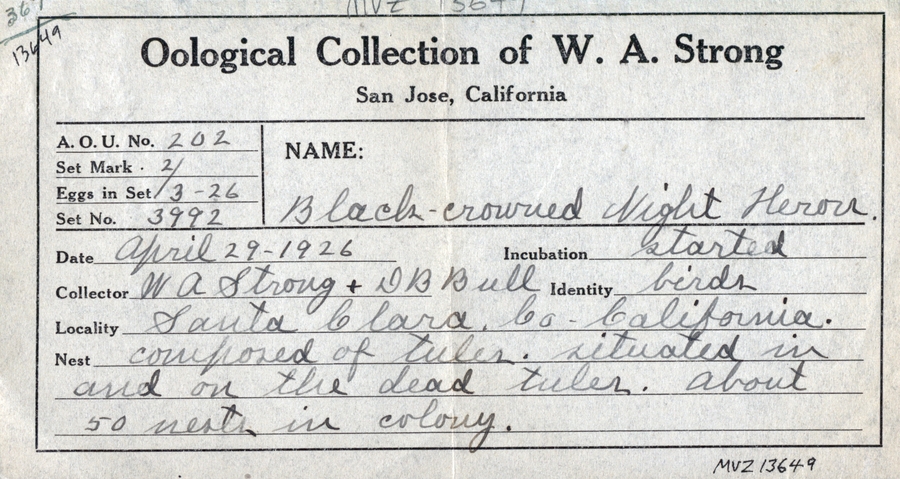 MVZ 13649
13649
Oological Collection of W. A. Strong
San Jose, California
A. O. U. No. 202
Set Mark . 2/
Eggs in Set /3-26
Set No. 3992
NAME:
Black-crowned Night Heron.
Date April 29-1926
Incubation started
Collector W A Strong + D B Bull
Identity birds
Locality Santa Clara. Co - California.
Nest composed of tules. situated in
and on the dead tules. about
50 nests in colony.
MVZ 13649